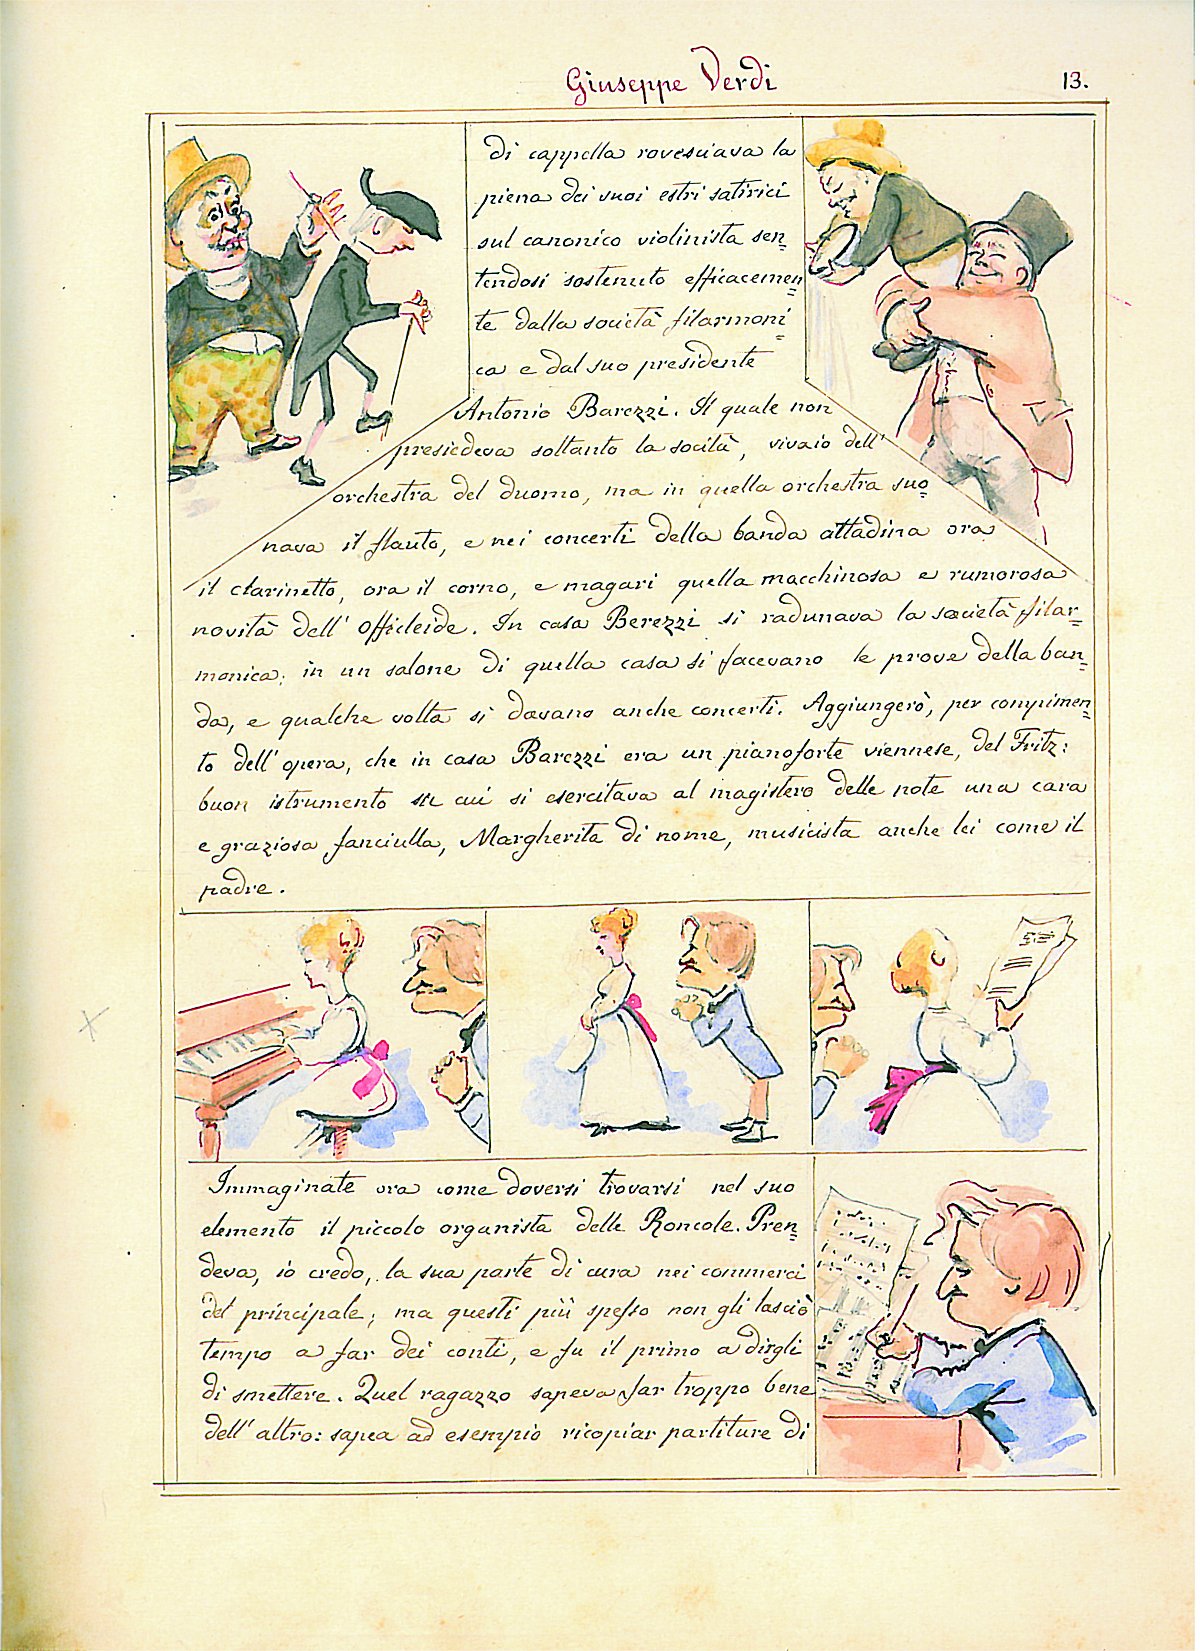 Giuseppe Verdi
13.
di cappella rovesciava la
piena dei suoi estri satirici
sul canonico violinista sen=
tendosi sostenuto efficacemen=
te dalla società filarmoni=
ca e dal suo presidente
Antonio Barezzi. Il quale non
presiedeva soltanto la socità, vivaio dell'
orchestra del duomo, ma in quella orchestra suo=
nava il flauto, e nei concerti della banda cittadina ora
il clarinetto, ora il corno, e magari quella macchinosa e rumorosa
novità dell' officleide. In casa Berezzi si radunava la società filar=
monica; in un salone di quella casa si facevano le prove della ban=
da, e qualche volta si davano anche concerti. Aggiungerò, per conpimen=
to dell' opera, che in casa Barezzi era un pianoforte viennese, del Fritz:
buon istrumento su cui si esercitava al magistero delle note una cara
e graziosa fanciulla, Margherita di nome, musicista anche lei come il
padre.
Immaginate ora come doversi trovarsi nel suo
elemento il piccolo organista delle Roncole. Pren=
deva, io credo, la sua parte di cura nei commerci
del principale; ma questi più spesso non gli lasciò
tempo a far dei conti, e fu il primo a dirgli
di smettere. Quel ragazzo sapeva far troppo bene
dell' altro: sapea ad esempio ricopiar partiture di